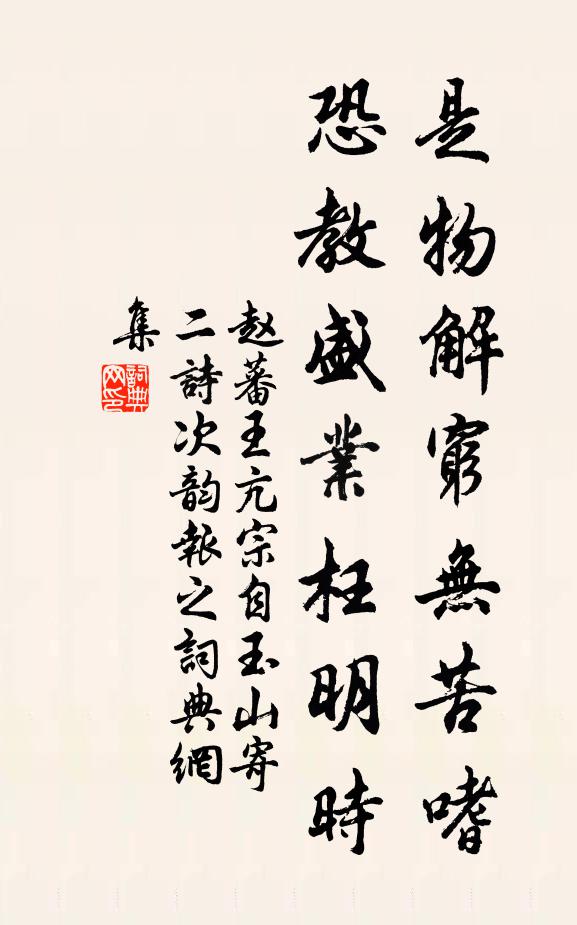 是物解窮無苦嗜
恐教盛業枉明時
赵蕃王亢宗自玉山寄
二詩次韵報之詞典網
集
詞典
网印